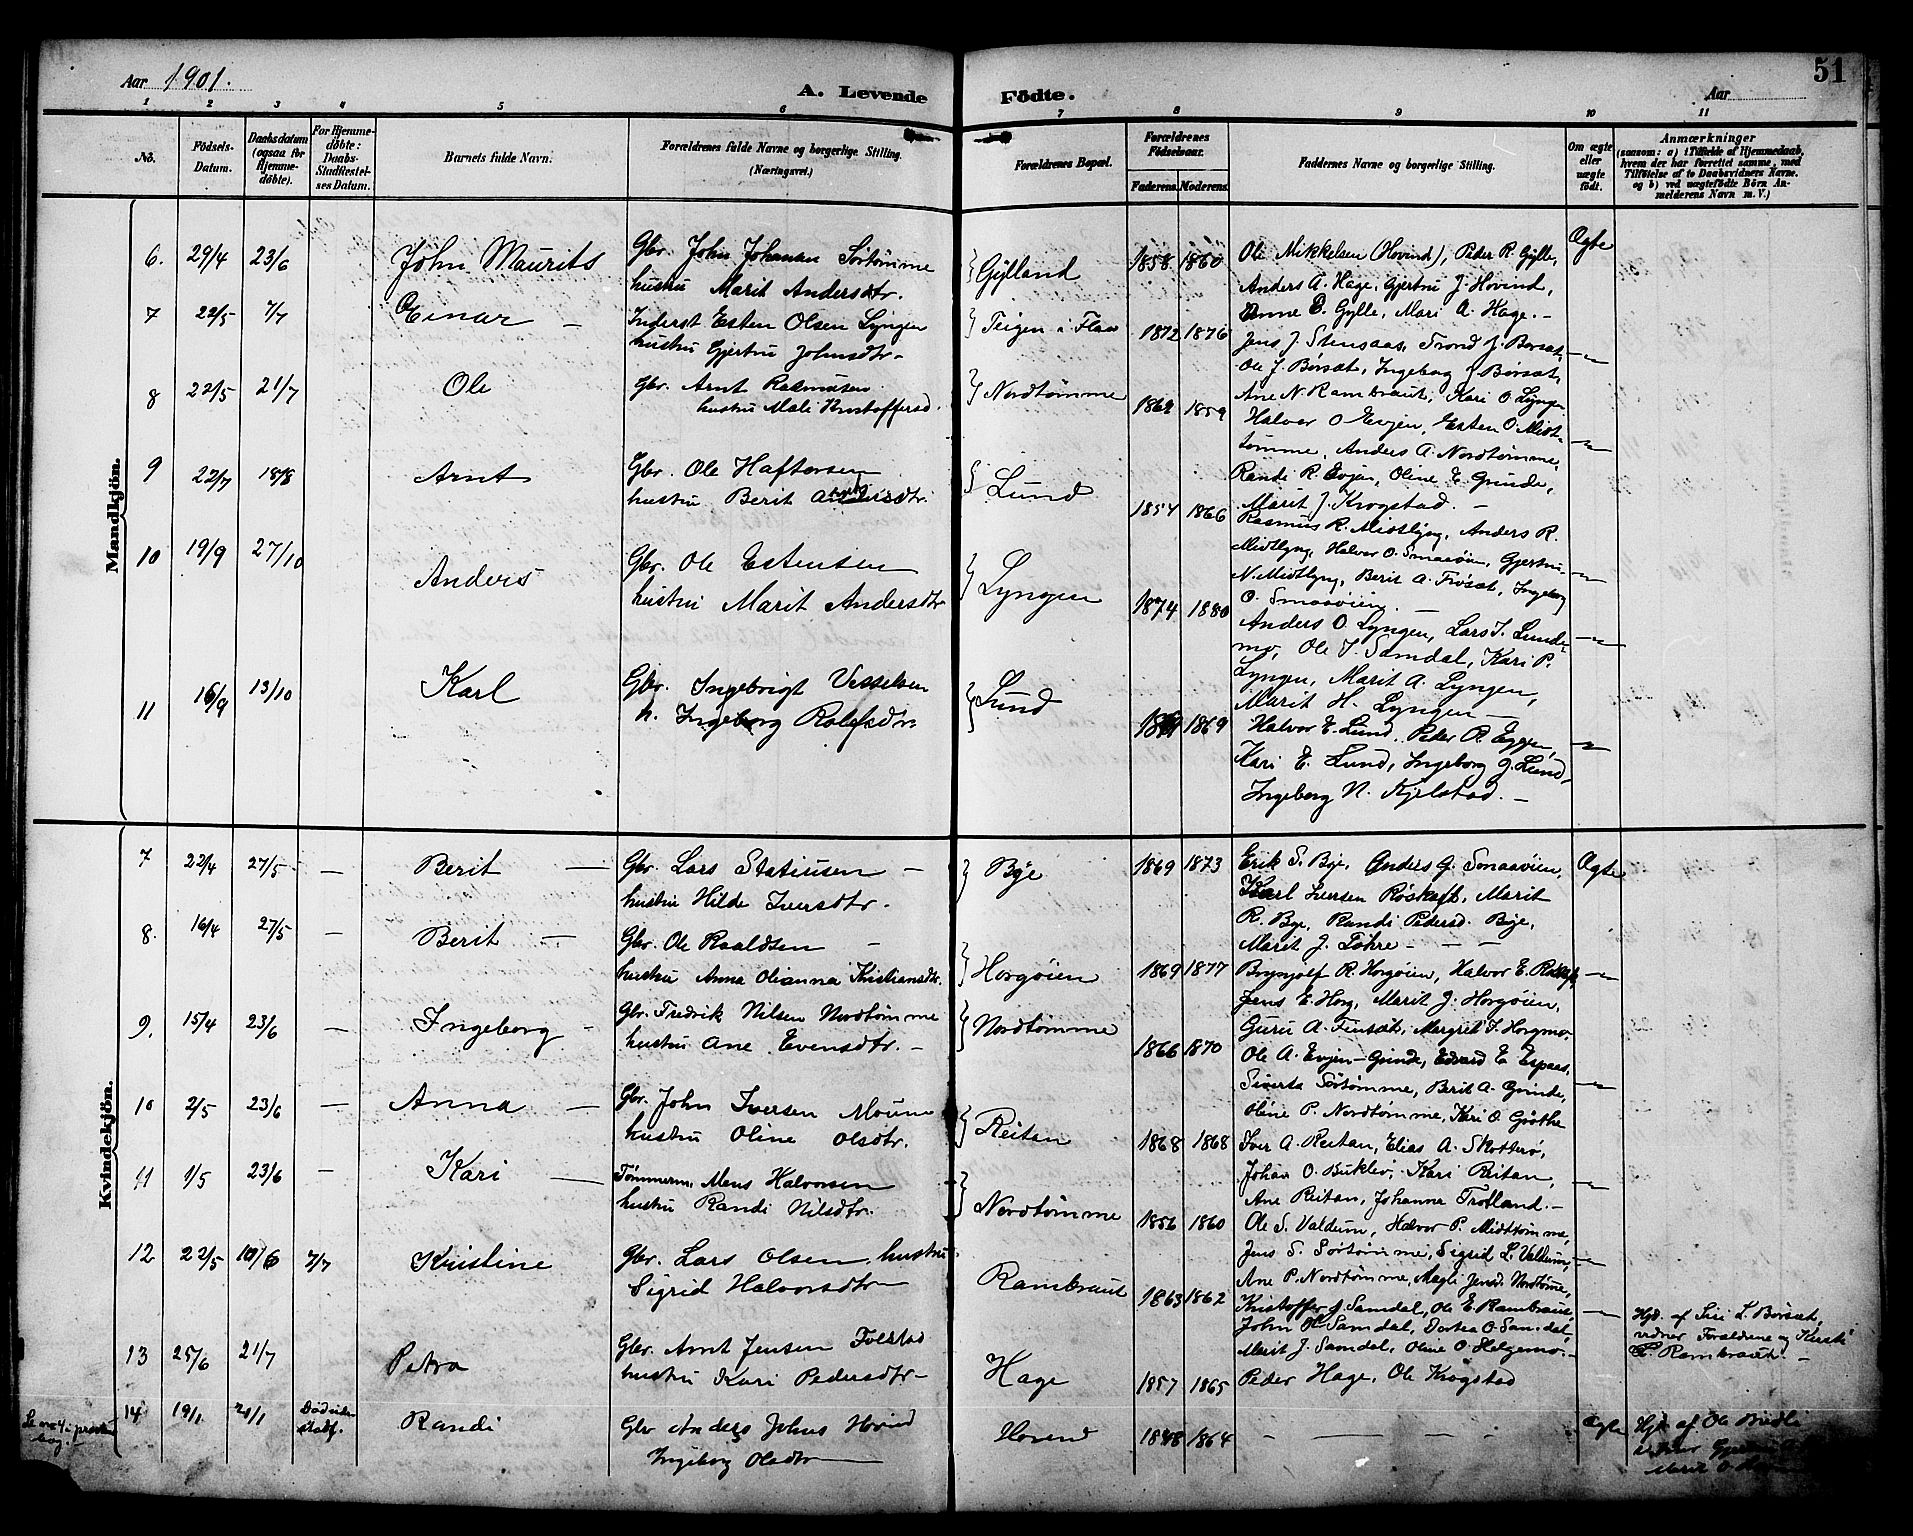 Aar 1901.
A. Levende Födte.
Aar
51
1 2 3 4 5 6 7 8 9 10 11
No.
Födsels-Datum.
Daabsdatum (ogsaa for Hjemme-döbte).
For Hjemme-döbte: Daabs-Stadfæstel-ses Datum.
Barnets fulde Navn.
Forældrenes fulde Navne og borgerlige Stilling. (Næringsvei.)
Forældrenes Bopæl.
Forældrenes Födselsaar.
Faderens. Moderens.
Faddernes Navne og borgerlige Stilling.
Om ægte eller uægte födt.
Anmærkninger
(saasom: a) i Tilfælde af Hjemmedaab, hvem der har forrettet samme, med Tilföielse af to Daabsvidners Navne. og b) ved uægtefödte Börn An-melderens Navn m. V.)
Mandkjön.
6. 29/4 23/6 John Maurits
Gbr. John Johansen Sørtømme
hustru Marit Andersdtr.
Gylland 1858 1860
Ole Mikkelsen (Hovind), Peder R. Gylle,
Anders A. Hage, Gjertru J. Hovind,
Anne E. Gylle, Mari A. Hage. -
Ægte
7 22/5 7/7 Einar -
Inderst Esten Olsen Lyngen
hustru Gjertru Johnsdtr -
Teigen i Flaa 1872 1876
Jens J. Stensaas, Trond J. Borsæt,
Ole J. Børsæt, Ingeborg J. Borsæt,
Ane N. Rambraut, Kari O. Lyngen
8 22/5 21/7 Ole
Gbr. Arnt Rasmusen
hustru Mali Kristoffersd.
Nordtømme 1869 1859
Halvor O Evjen, Esten O. Midt-
tømme, Anders A. Nordtømme,
Randi R. Evjen, Oline E. Grinde,
Marit J. Krogstad. -
9 22/7 18/8 Arnt
Gbr. Ole Haftorsen
hustru Berit Andersdtr.
Lund 1854 1866
Rasmus R. Midtlyng, Anders R.
Midtlyng, Halvor O. Smaaøien, Gjertru
N. Midtlyng, Berit A. Frøsæt, Ingeborg
O. Smaaøien. -
10 19/9 27/10 Anders
Gbr. Ole Estensen
hustru Marit Andersdtr
Lyngen 1874 1880
Anders O. Lyngen, Lars J. Lunde-
mo, Ole J. Samdal, Kari P.
Lyngen, Marit A. Lyngen,
Marit H. Lyngen -
11 16/9 13/10 Karl
Gbr. Ingebrigt Vesselsen
h. Ingeborg Rolfsdtr.
Lund 1869
Halvor E. Lund, Peder P. Eggen,
Kari E. Lund, Ingeborg J. Lund,
Ingeborg N. Kjelstad. -
Kvindekjön.
7 22/4 27/5 - Berit -
Gbr. Lars Statiusen -
hustru Hilde Iversdtr.
Bye 1869 1873
Erik S. Bye, Anders J. Smaaøien,
Karl Iversen Røskaft, Marit
R. Bye, Randi Pedersd. Bye,
Marit J. Løhre - - -
Ægte
8. 16/4 27/5 - Berit -
Gbr. Ole Roaldsen -
hustru Anna Olianna Kristiansdtr.
Horgøien 1869 1877
Brynjolf R. Horgøien, Halvor E. Røskaft,
Jens E. Horg, Marit J. Horgøien,
Guru A. Finsæt, Margret J. Horgmo.
9. 15/4 23/6 - Ingeborg -
Gbr. Fredrik Nilsen Nordtømme
hustru Ane Evensdtr. -
Nordtømme 1866 1870
Ole A. Evjen-Grinde, Edvard E Espaas,
Siverta Sørtømme, Berit A. Grinde,
Oline P. Nordtømme, Kari O. Grøthe
10 2/5 23/6 - Anna -
Gbr. John Iversen Moum
hustru Oline Olsdtr.
Reitan 1868 1868
Iver A. Reitan, Elias A. Skotterø,
Johan O. Buklev, Kari Reitan,
Ane Reitan, Johanna Trotland. -
11 1/5 23/6 - Kari -
Tømmerm. Mons Halvorsen
hustru Randi Nilsdtr.
Nordtømme 1856 1860
Ole S. Valdum, Halvor P. Midttømme,
Jens S. Sørtømme, Sigrid L. Valdum,
Ane P. Nordtømme, Magli Jensd. Nordtømme,
12 22/5 10/6 7/7 Kristine
Gbr. Lars Olsen, hustru
Sigrid Halvorsdtr -
Rambraut 1863 1862
Kristoffer J. Samdal, Ole E. Rambraut,
John O. Samdal, Dortea O. Samdal,
Marit J. Samdal, Oline O. Helgemo. -
Hjd. af Siri L. Børsæt,
vidner Forældrene og Kirsti
L. Rambraut. -
13 25/6 21/7 Petra
Gbr. Arnt Jensen Folstad
hustru Kari Pedersdtr -
Hage 1857 1865
Peder Hage, Ole Krogstad
14 19/1 20/1 Død uden stadf. Randi
Gbr Anders Johns Hovind
Ingeborg Olsdtr -
Hovind 1848 1864
- - - - -
Ægte
Hjd. af Ole
Marit O.